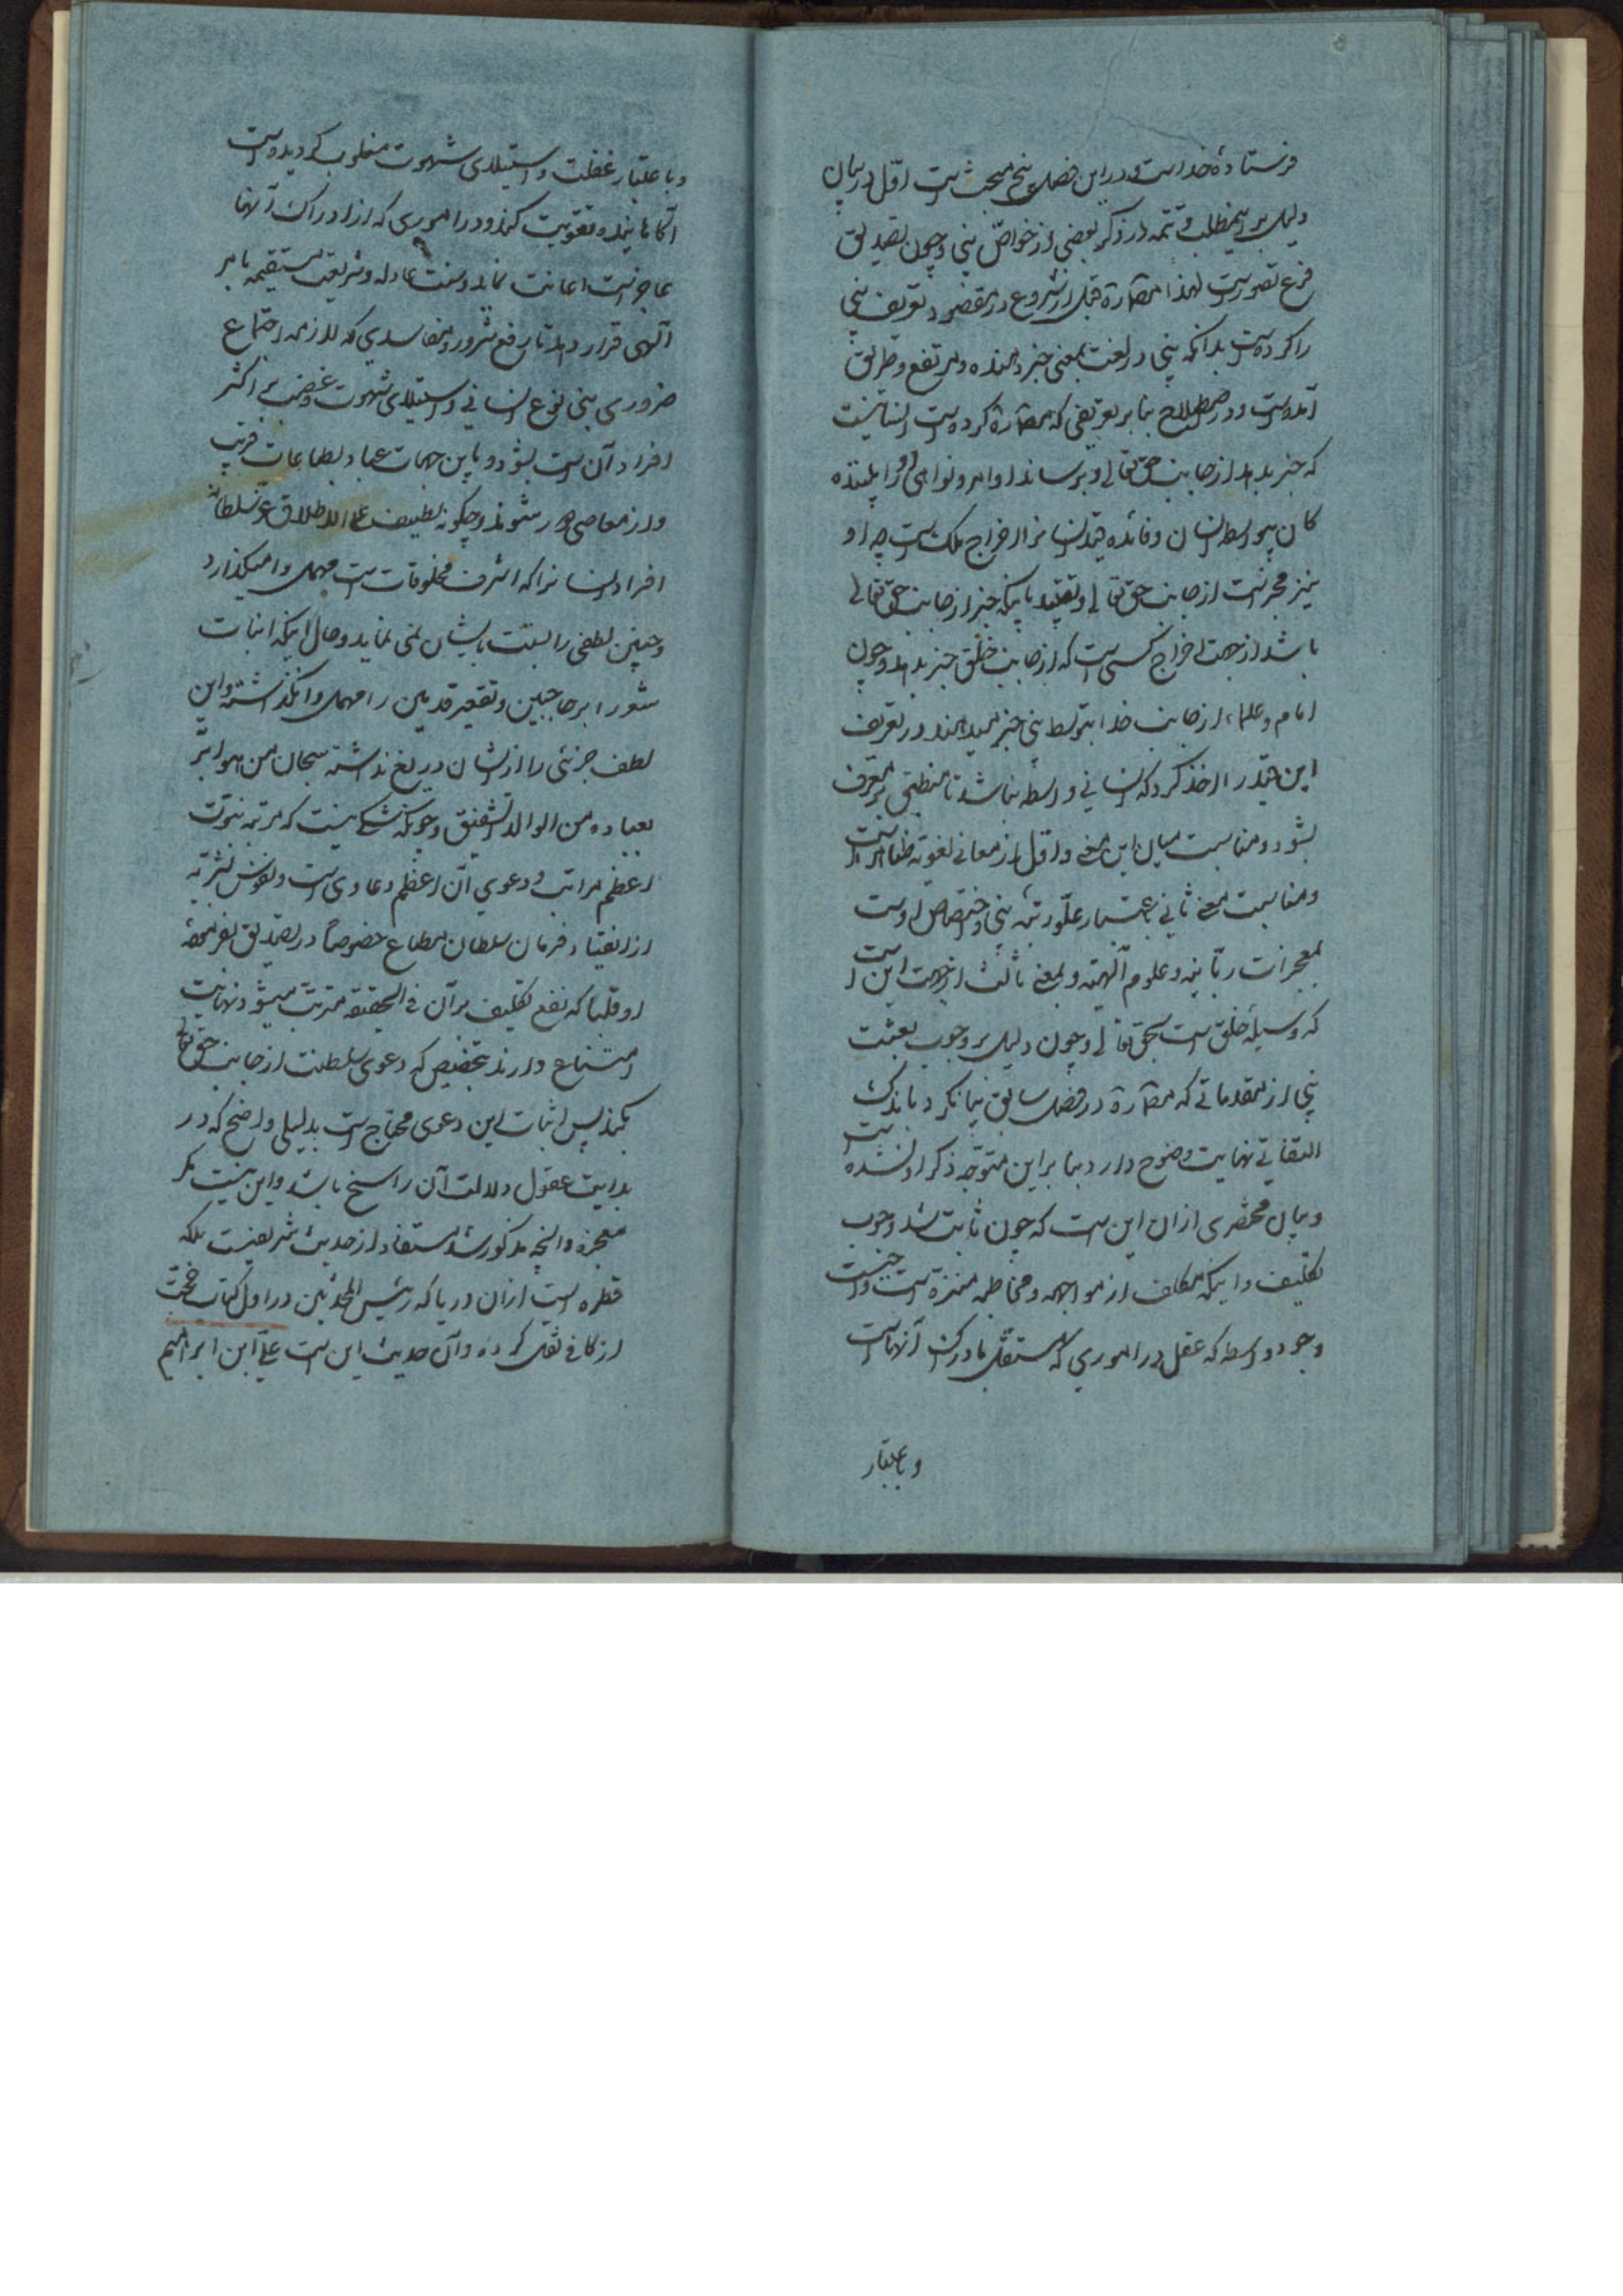 فرستادهٔ خداست و در این فصل پنج مبحث است اول در بیان
دلیل بر این مطلب و تتمه در ذکر بعضی از خواص نبی و چون تصدیق
فرع تصور است لهذا قبل از شروع در مقصود تعریف نبی
را کرده است بدانکه نبی در لغت بمعنی خبر دهنده و مرتفع و طریق
آمده است و در اصطلاح بنا بر تعریفی که کرده است انسانیست
که خبر بدهد از جانب حق تعالی و برساند اوامر و نواهی او را به بنده
کان بیواسطه انسان و فائده قید انسان اخراج ملک است چه او
نیز مخبر است از جانب حق تعالی و تقیید باینکه خبر از جانب حق تعالی
باشد از جهت اخراج کسی است که از جانب خلق خبر بدهد و چون
امام و علماء از جانب خدا بتوسط نبی خبر میدهند در تعریف
این قید را اخذ کرد که انسانی واسطه نباشد تا منطبق بر معرف
بشود و مناسبت میان این معنی و اول از معانی لغویه ظاهر است
و مناسبت معنی ثانی باعتبار علو رتبه نبی و اختصاص اوست
بمعجزات ربانیه و علوم الهیه و بمعنی ثالث از جهت این است
که وسیلهٔ خلق است بحق تعالی و چون دلیل بر وجوب بعثت
نبی از مقدماتی که در فصل سابق بیان کرد باندک
التفاتی نهایت وضوح دارد بنا بر این متوجه ذکر او نشده است
و بیان مختصری از ان این است که چون ثابت شد وجوب
تکلیف و اینکه مکلف از مواجهه و مخاطبه منزه است
وجود واسطه که عقل در اموری که مستقل بادراک آنهاست
و باعتبار
و باعتبار غفلت و استیلای شهوت مغلوب کردیده است
آکاه نماید و تقویت کند و در اموری که از ادراک آنها
عاجز است اعانت نماید و سنت عادله و شریعت مستقیمه بامر
الهی قرار دهد تا رفع شرور و مفاسدی که لازمه اجتماع
ضروری بنی نوع انسانی و استیلای شهوت و غضب بر اکثر
افراد آن است بشود و باین جهات عباد بطاعات قریب
و از معاصی دور شوند و چکونه لطیف علی الاطلاق عز سلطانه
افراد انسانرا که اشرف مخلوقات است مهمل وامیکذارد
و چنین لطفی را نسبت بایشان نمی نماید و حال اینکه انبات
شعر را بر حاجبین و تقعیر قدمین را مهمل وانکذاشته و این
لطف جزئی را از ایشان دریغ نداشته سبحان من هو ابر
بعباده من الوالد الشفیق و چونکه شکی نیست که مرتبه نبوت
اعظم مراتب و دعوی آن اعظم دعاوی است و نفوس بشریه
از انقیاد فرمان سلطان مطاع خصوصاً در
او قلبا که نفع تکلیف بر آن فی الحقیقه مترتب میشود نهایت
امتناع دارند بتخصیص که دعوی سلطنت از جانب حق تعالی
بکند پس اثبات این دعوی محتاج است بدلیلی واضح که در
بدایت عقول دلالت آن راسخ باشد و این نیست مکر
معجزه و آنچه مذکور شد مستفاد از حدیث شریفیست بلکه
قطره است از ان دریا که رئیس المحدثین در اول کتاب حجت
از کافی نقل کرده و آن حدیث این است علی ابن ابراهیم